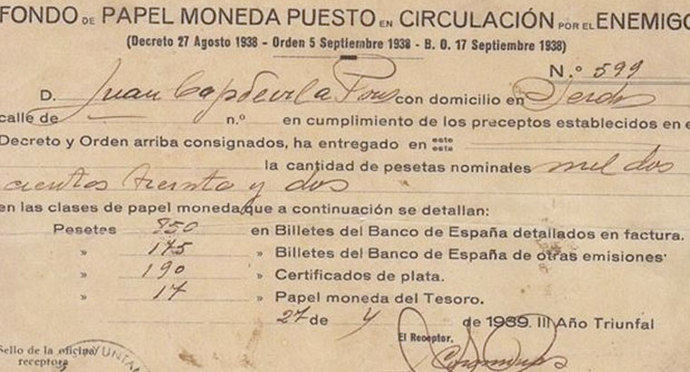 FONDO DE PAPEL MONEDA PUESTO EN CIRCULACIÓN POR EL ENEMIGO
(Decreto 27 Agosto 1938 - Orden 5 Septiembre 1938 - B. O. 17 Septiembre 1938)
N.º 599
D. Juan Capdevila Pous con domicilio en
calle de n.º en cumplimiento de los preceptos establecidos en e
Decreto y Orden arriba consignados, ha entregado en este esta
la cantidad de pesetas nominales mil dos
cientos treinta y dos
en las clases de papel moneda que a continuación se detallan:
Pesetes 850 en Billetes del Banco de España detallados en factura.
» 175 » Billetes del Banco de España de otras emisiones
» 190 » Certificados de plata.
» 17 » Papel moneda del Tesoro.
27 de 4 de 1939. III Año Triunfal
El Receptor,
Sello de la oficina
receptora